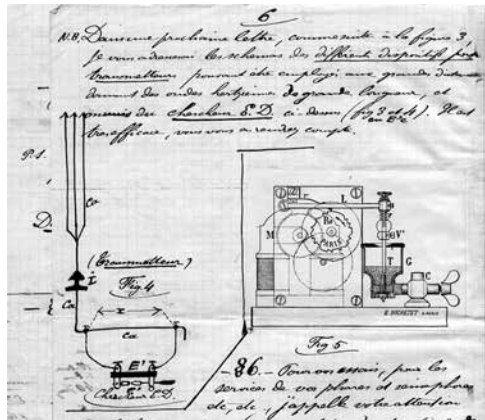 6
N.B. Dans une prochaine lettre, comme suite à la figure 3,
je vous adresserai les schémas des différents dispositifs pour
transmetteurs pouvant être employés aux grandes distances
donnant des ondes hertziennes de grande longueur, et
munis du chercheur E.D. ci-dessus (fig 3 et 4). Il est
très efficace, vous vous en rendrez compte.
P.S.
D.
Ca
(Transmetteur)
Fig 4
Ca
x
Ca
E'
Chercheur E.D.
r
L
M
R
PARIS
V'
T
G
C
E. DUCRETET
Fig 5
-86.- Pour vos essais, pour les
services de vos phares et sémaphores
etc, etc, j'appelle votre attention